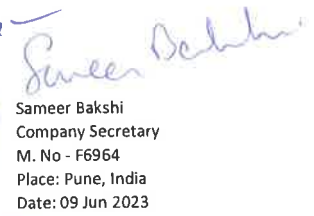 Sameer Bakshi
Sameer Bakshi
Company Secretary
M. No - F6964
Place: Pune, India
Date: 09 Jun 2023